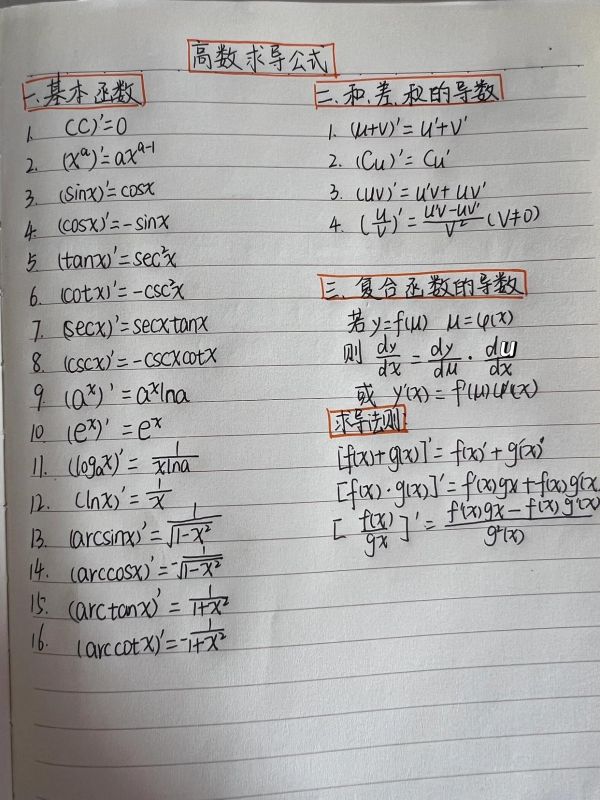 高数求导公式
一、基本函数
1. (C)'=0
2. (xᵃ)'=axᵃ⁻¹
3. (sinx)'=cosx
4. (cosx)'=-sinx
5. (tanx)'=sec²x
6. (cotx)'=-csc²x
7. (secx)'=secxtanx
8. (cscx)'=-cscxcotx
9. (aˣ)'=aˣlna
10. (eˣ)'=eˣ
11. (logₐx)'=1/(xlna)
12. (lnx)'=1/x
13. (arcsinx)'=1/√(1-x²)
14. (arccosx)'=-1/√(1-x²)
15. (arctanx)'=1/(1+x²)
16. (arccotx)'=-1/(1+x²)
二、和、差、积的导数
1. (u+v)'=u'+v'
2. (Cu)'=Cu'
3. (uv)'=u'v+uv'
4. (u/v)'=(u'v-uv')/v² (v≠0)
三、复合函数的导数
若y=f(μ) μ=φ(x)
则 dy/dx=dy/dμ·du/dx
或 y'(x)=f'(μ)φ'(x)
求导法则:
[f(x)+g(x)]'=f(x)'+g(x)'
[f(x)·g(x)]'=f'(x)gx+f(x)g'(x)
[f(x)/gx]'=(f'(x)gx-f(x)g'(x))/g²(x)